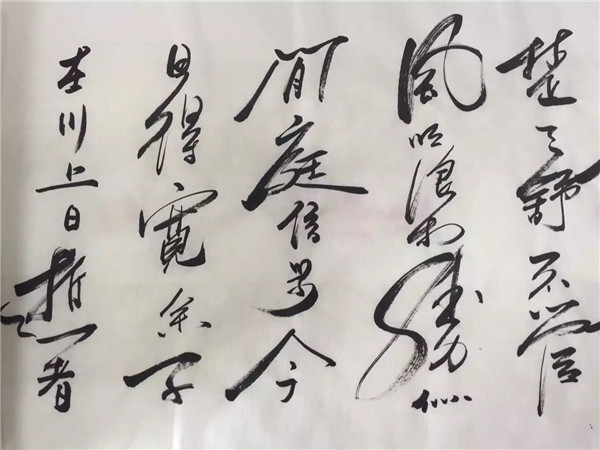 楚天舒不管
風吹浪打勝似
閒庭信步今
日得寬余子
在川上曰逝者